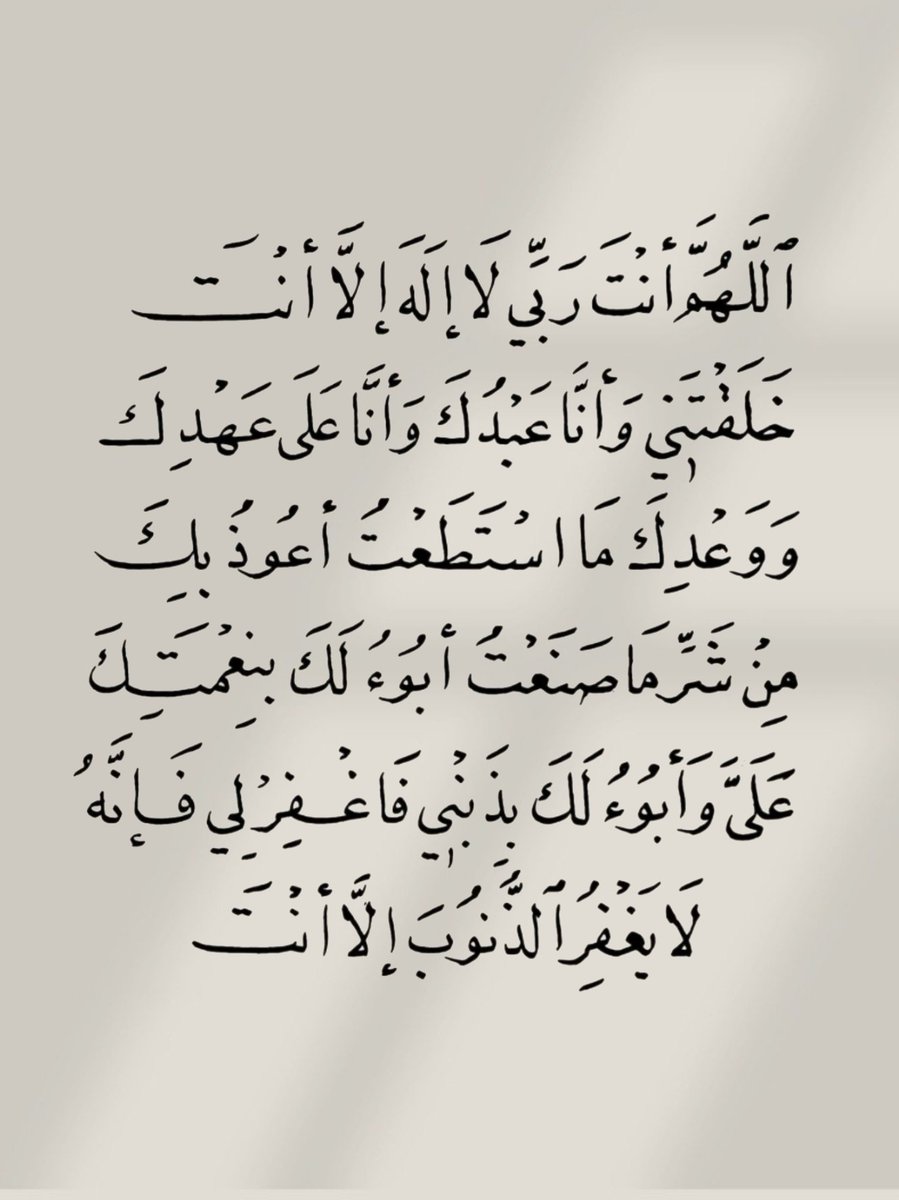 ٱللَّهُمَّ أَنْتَ رَبِّي لَا إِلَهَ إِلَّا أَنْتَ
خَلَقْتَنِي وَأَنَّا عَبْدُكَ وَأَنَّا عَلَى عَهْدِكَ
وَوَعْدِكَ مَا اسْتَطَعْتُ أَعُوذُ بِكَ
مِنْ شَرِّ مَا صَنَعْتُ أَبُوءُ لَكَ بِنِعْمَتِكَ
عَلَيَّ وَأَبُوءُ لَكَ بِذَنْبِي فَاغْفِرْ لِي فَإِنَّهُ
لَا يَغْفِرُ ٱلذُّنُوبَ إِلَّا أَنْتَ